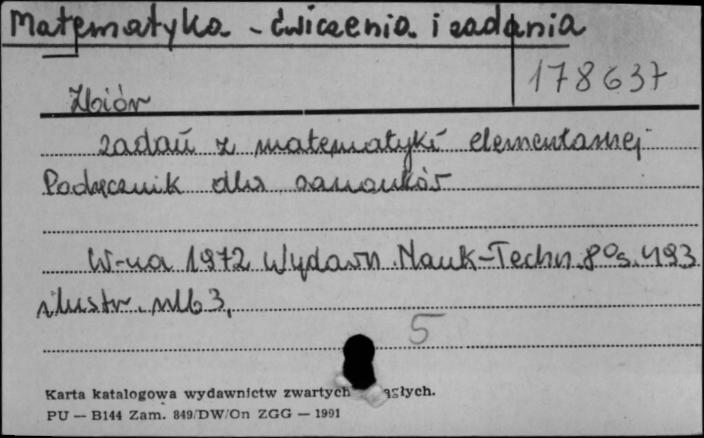 Matematyka - ćwiczenia i zadania
178637
Zbiór
zadań z matematyki elementarnej
Podręcznik dla samouków
W-wa 1972 Wydawn. Nauk-Techn. 8° s. 493
ilustr. nlb 3.
5
Karta katalogowa wydawnictw zwartych ciągłych.
PU — B144 Zam. 849/DW/On ZGG — 1991